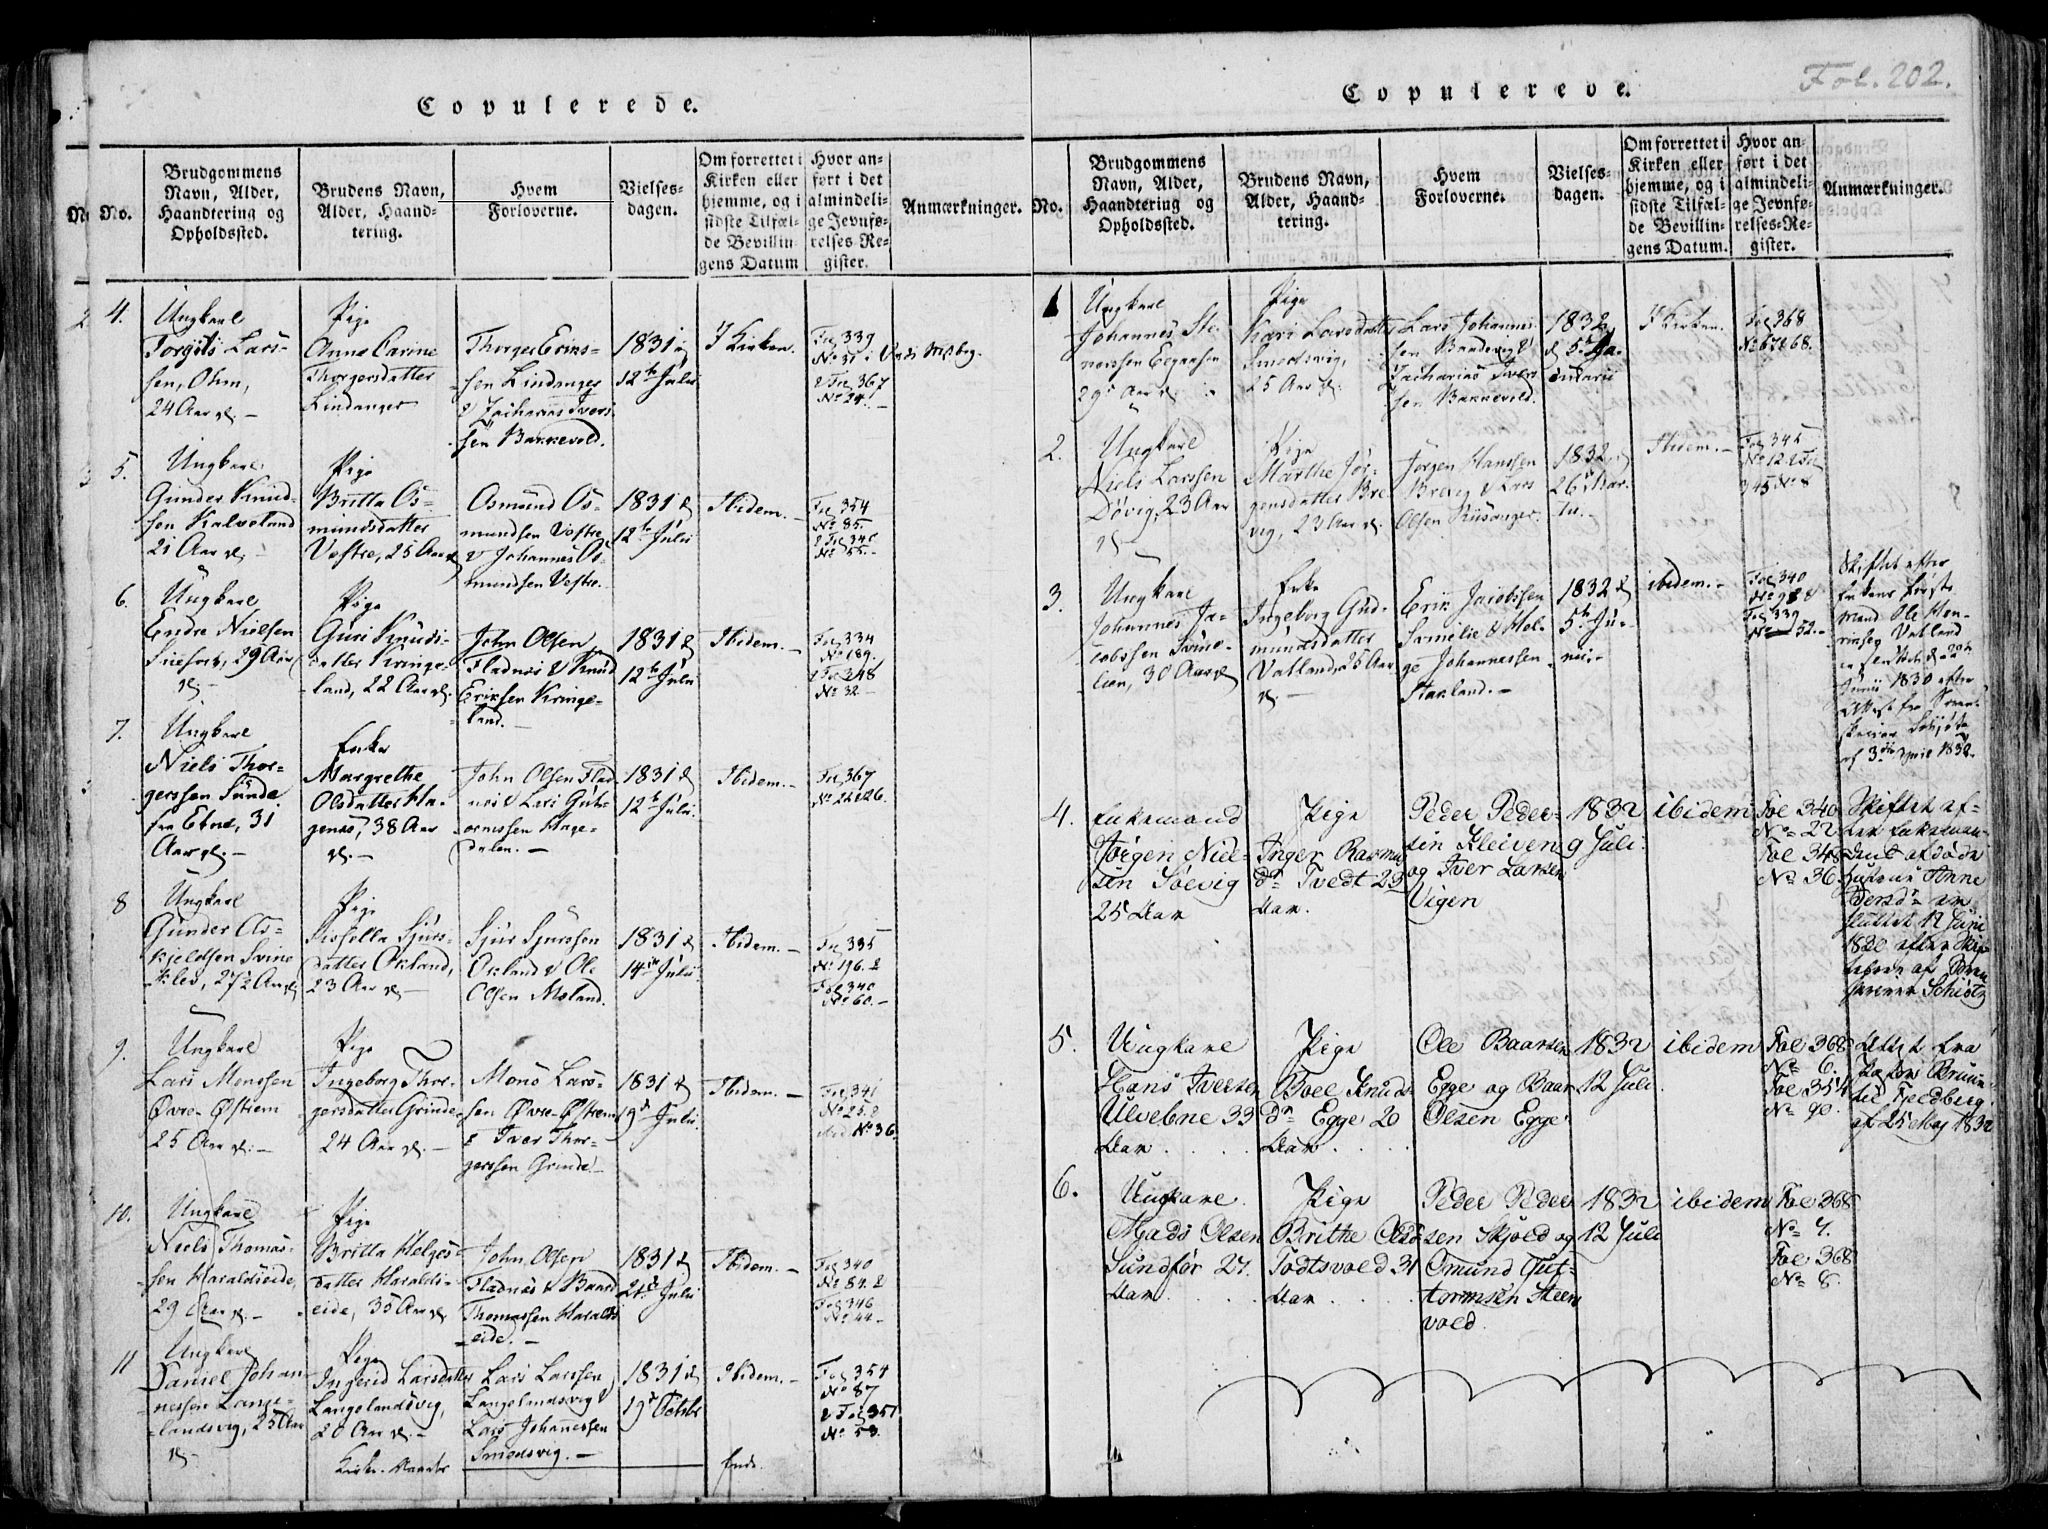 Copulerede.
No.
Brudgommens
Navn, Alder,
Haandtering og
Opholdssted.
Brudens Navn,
Alder, Haand-
tering.
Hvem
Forloverne.
Vielses-
dagen.
Om forrettet i
Kirken eller
hjemme, og i
sidste Tilfæl-
de Bevillin-
gens Datum
Hvor an-
ført i det
almindeli-
ge Jevnfø-
relses-Re-
gister.
Anmærkninger.
4.
Ungkarl
Torgils Lars-
sen, Ohm,
24 Aar
Pige
Anne Carine
Thorgersdatter
Lindanger
Thorger Erics-
sen Lindanger
& Zacharias Ivers-
sen Bakkevold.
1831 d
12te Julii
I Kirken.
Fol 339
No 31
& Fol 367
No 24.
5.
Ungkarl
Gunder Knud-
sen Kalveland
21 Aar
Pige
Britta Os-
mundsdatter
Vestre, 25 Aar
Osmund Os-
mundsen Vestre
& Johannes Os-
mundsen Vestre.
1831 d
12te Julii
Ibidem.
Fol 354
No 85.
& Fol 340
No 55.
6.
Ungkarl
Endre Nielsen
29 Aar
Pige
Guri Knuds-
datter Kringe-
land, 22 Aar
John Olsen
Fladnes & Knud
Ericksen Kringe-
land.
1831 d
12te Julii
Ibidem.
Fol 334
No 189.
& Fol 348
No 32
7.
Ungkarl
Niels Thor-
gersen Sunde
fra Etne, 31
Aar
Enke
Margrethe
Olsdatter Ha-
genes, 38 Aar
John Olsen Flad-
nes & Lars Gut-
ormssen Hage-
dalen.
1831 d
12te Julii
Ibidem.
Fol 367
No 25 & 26.
8
Ungkarl
Gunder As-
kjeldsen Svine-
klev, 27½ Aar
Pige
Sissella Sjurs-
datter Økland,
23 Aar
Sjur Sjurssen
Økland & Ole
Olsen Møland.
1831 d
14de Julii
Ibidem.
Fol 335
No 196. &
Fol 340
No 60.
9.
Ungkarl
Lars Monssen
Øvre-Østrem
25 Aar
Pige
Ingeborg Thor-
gersdatter Grinde
24 Aar
Mons Lars-
sen Øvre-Østrem
& Iver Thor-
gerssen Grinde
1831 d
19de Julii
Ibidem.
Fol 341
No 25. &
ibid No 36.
10.
Ungkarl
Niels Thomas-
sen Haraldseide,
29 Aar
Pige
Britta Helges-
datter Haralds-
eide, 35 Aar
John Olsen
Fladnes & Baard
Thomassen Haralds-
eide.
1831 d
21de Julii
Ibidem.
Fol 340
No 84. &
Fol 346
No 44.
11
Ungkarl
Daniel Johan-
nessen Lange-
landsvig, 25 Aar
Pige
Ingerid Larsdatter
Langelandsvig,
20 Aar
Lars Larssen
Langelandsvig &
Lars Johannessen
Smedsvig.
1831 d
19de Octobr
Ibidem.
Fol 354
No 87
& Fol 351
No 53.
Copulerede.
Fol. 202.
No.
Brudgommens
Navn, Alder,
Haandtering og
Opholdssted.
Brudens Navn,
Alder, Haand-
tering.
Hvem
Forloverne.
Vielses-
dagen.
Om forrettet i
Kirken eller
hjemme, og i
sidste Tilfæl-
de Bevillin-
gens Datum.
Hvor an-
ført i det
almindeli-
ge Jevnfø-
relses-Re-
gister.
Anmærkninger.
1
Ungkarl
Johannes Ste-
29 Aar
Pige
Kari Larsdatter
Smedsvig,
25 Aar
Lars Johannes-
sen
Zacharias Ivers-
sen Bakkevold.
1832
d 5te Ja-
nuarii
I Kirken.
Fol 368
No 67 & 68.
2.
Ungkarl
Niels Larssen
Døvig, 23 Aar
Pige
Marthe Jør-
gensdatter Bre-
vig, 23 Aar
Jørgen Hanssen
Brevig & Lars
Olsen Risanger.
1832 d
26de Mar-
tii.
Ibidem.
Fol 345
No 12 & Fol
345 No 8
3.
Ungkarl
Johannes Ja-
cobssen Svino-
lien, 30 Aar
Enke
Ingeborg Gud-
mundsdatter
Vatland, 25 Aar
Erik Jacobssen
Samelie & Hel-
ge Johannessen
Stakland.
1832 d
5te Ju-
nii.
ibidem.
Fol 340
No 98 &
Fol 339
No 52.
Skiftet efter
Enkens første
Mand Ole
Vatland
Junii 1830 efter
Attest fra Soren-
skriver Schiøtz
af 3die April 1832.
4.
Enkemand
Jørgen Niel-
sen Søevig
25 Aar
Pige
Inger Rasmus
dr Tvedt 23
Aar.
Peder Peder-
sen Kleiven
og Iver Larsen
Vigen
1832
9 Juli
ibidem
Foe 340
No 22
Foe 348
No 36
Skiftet ef-
ter Enkeman-
dens afdøde
Hustrue Anne
Persdr er
sluttet 12 Juni
1830 efter Skif-
tebrev af Soren
skriver Schiøtz
5.
Ungkare
Hans Iversen
Ulvebne 33
Aar
Pige
Boel Knuds
dr Egge 20
Aar
Ole Baarsen
Egge og Baar
Olsen Egge
1832
12 Juli.
ibidem
Foe 368
No 6.
Foe 354
No 90.
Attest fra
Pastor Bruun
til Fjeldberg
af 25 Maj 1832
6.
Ungkare
Mads Olsen
Sundfør 27.
Aar
Pige
Brithe Olds
Todtsvold 31
Aar
Peder Peder
sen Skjold og
Omund Gut-
tormsen Steens
vold.
1832
12 Juli
ibidem
Foe 368
No 7.
Foe 368
No 8.